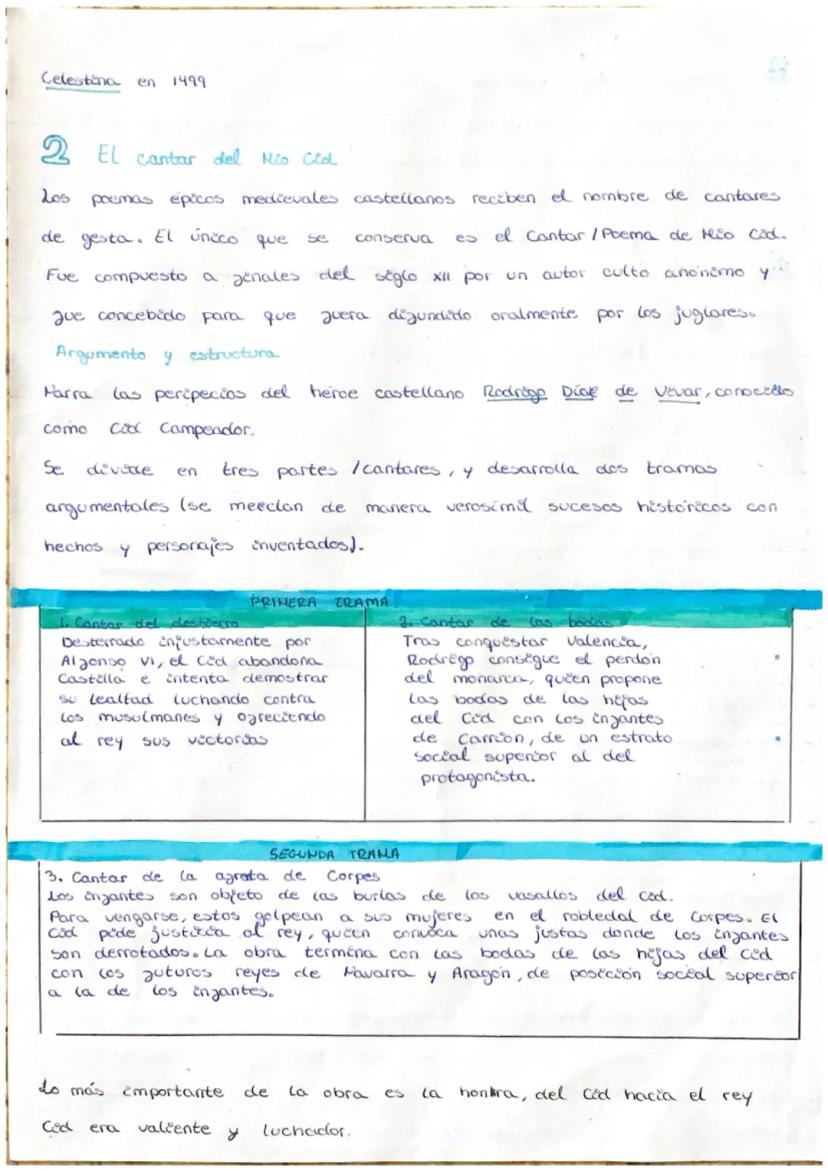 Celestina en 1499
2 El cantar del Mio Cid
Los poemas épicos medievales castellanos reciben el nombre de cantares
de gesta. El único que se conserva es el Cantar/Poema de Mio Cid.
Fue compuesto a finales del siglo XII por un autor culto anónimo y
fue concebido para que fuera difundido oralmente por los juglares.
Argumento y estructura
Narra las peripecias del héroe castellano Rodrigo Díaz de Vivar, conocido
como Cid Campeador.
Se divide en tres partes /cantares, y desarrolla dos tramas
argumentales (se mezclan de manera verosímil sucesos históricos con
hechos y personajes inventados).
PRIMERA TRAMA
1. Cantar del destierro
Desterrado injustamente por
Alfonso VI, el Cid abandona
Castilla e intenta demostrar
su lealtad luchando contra
los musulmanes y ofreciendo
al rey sus victorias
2. Cantar de las bodas
Tras conquistar Valencia,
Rodrigo consigue el perdón
del monarca, quien propone
las bodas de las hijas
del Cid con los infantes
de Carrión, de un estrato
social superior al del
protagonista.
SEGUNDA TRAMA
3. Cantar de la afrenta de Corpes
Los infantes son objeto de las burlas de los vasallos del Cid.
Para vengarse, estos golpean a sus mujeres en el robledal de Corpes. El
Cid pide justicia al rey, quien convoca unas justas donde los infantes
son derrotados. La obra termina con las bodas de las hijas del Cid
con los futuros reyes de Navarra y Aragón, de posición social superior
a la de los infantes.
Lo más importante de la obra es la honra, del Cid hacia el rey
Cid era valiente y luchador.